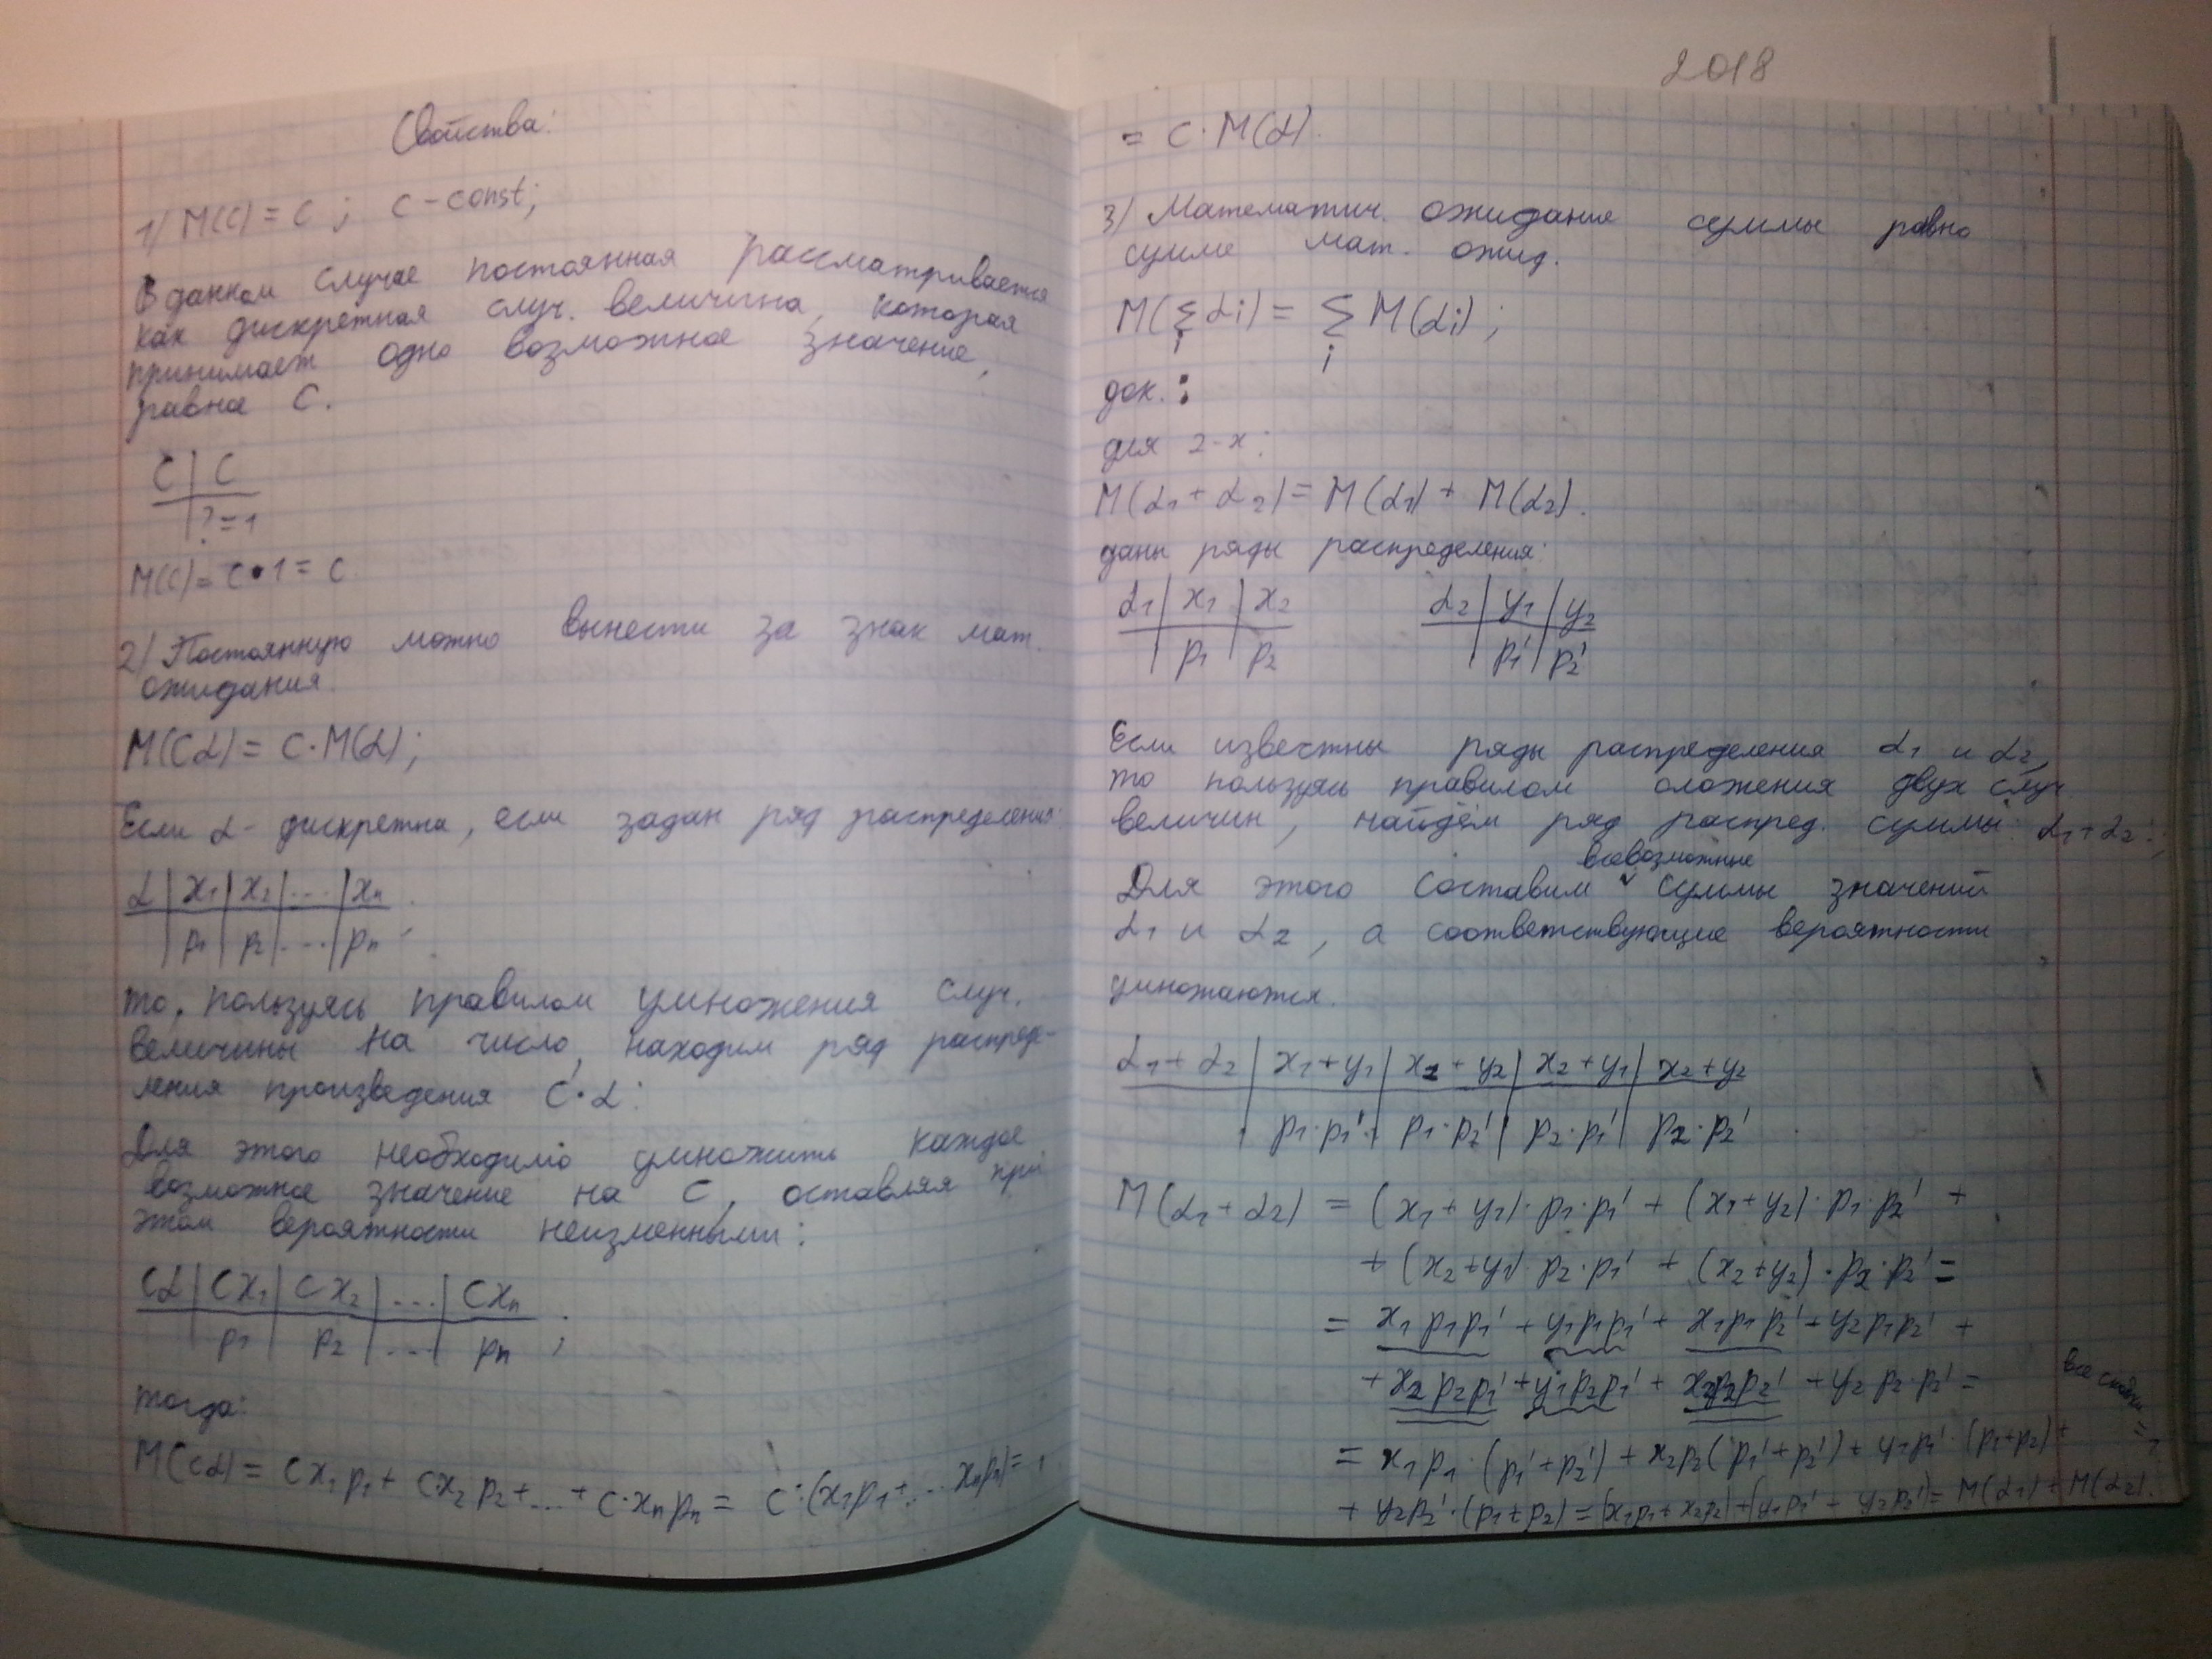 Свойства:
1) M(C) = C ; C - const;
В данном случае постоянная рассматривается
как дискретная случ. величина, которая
принимает одно возможное значение,
равное C.
C | C
| ? = 1
M(C) = C • 1 = C
2) Постоянную можно вынести за знак мат.
ожидания.
M(Cα) = C · M(α);
Если α - дискретна, если задан ряд распределения:
α | x₁ | x₂ | ... | xₙ
| p₁ | p₂ | ... | pₙ ,
то, пользуясь правилом умножения случ.
величины на число, находим ряд распреде-
ления произведения C · α:
Для этого необходимо умножить каждое
возможное значение на C, оставляя при
этом вероятности неизменными:
Cα | Cx₁ | Cx₂ | ... | Cxₙ
| p₁ | p₂ | ... | pₙ ;
тогда:
M(Cα) = Cx₁p₁ + C·x₂p₂ + ... + C·xₙpₙ = C·(x₁p₁ + ... xₙpₙ) =
2018
= C · M(α).
3) Математич. ожидания суммы равно
сумме мат. ожид.
M(∑ αi) = ∑ M(αi) ;
i i
док. :
для 2-х:
M(α₁ + α₂) = M(α₁) + M(α₂).
даны ряды распределения:
α₁ | x₁ | x₂ α₂ | y₁ | y₂
| p₁ | p₂ | p₁' | p₂'
Если известны ряды распределения α₁ и α₂,
то пользуясь правилом сложения двух случ.
величин, найдём ряд распред. суммы: α₁ + α₂ :
всевозможные
Для этого составим ✓ суммы значений
α₁ и α₂, а соответствующие вероятности
умножаются.
α₁ + α₂ | x₁ + y₁ | x₂ + y₂ | x₂ + y₁ | x₂ + y₂
| p₁ · p₁' | p₁ · p₂' | p₂ · p₁' | p₂ · p₂'
M(α₁ + α₂) = (x₁ + y₁) · p₁ · p₁' + (x₁ + y₂) · p₁ · p₂' +
+ (x₂ + y₁) · p₂ · p₁' + (x₂ + y₂) · p₂ · p₂' =
= x₁p₁p₁' + y₁p₁p₁' + x₁p₁p₂' + y₂p₁p₂' +
+ x₂p₂p₁' + y₁p₂p₁' + x₂p₂p₂' + y₂p₂·p₂' =
= x₁p₁ · (p₁' + p₂') + x₂p₂(p₁' + p₂') + y₁p₁' · (p₁ + p₂) +
+ y₂p₂' · (p₁ + p₂) = (x₁p₁ + x₂p₂) + (y₁p₁' + y₂p₂') = M(α₁) + M(α₂).
все скобки
= 1